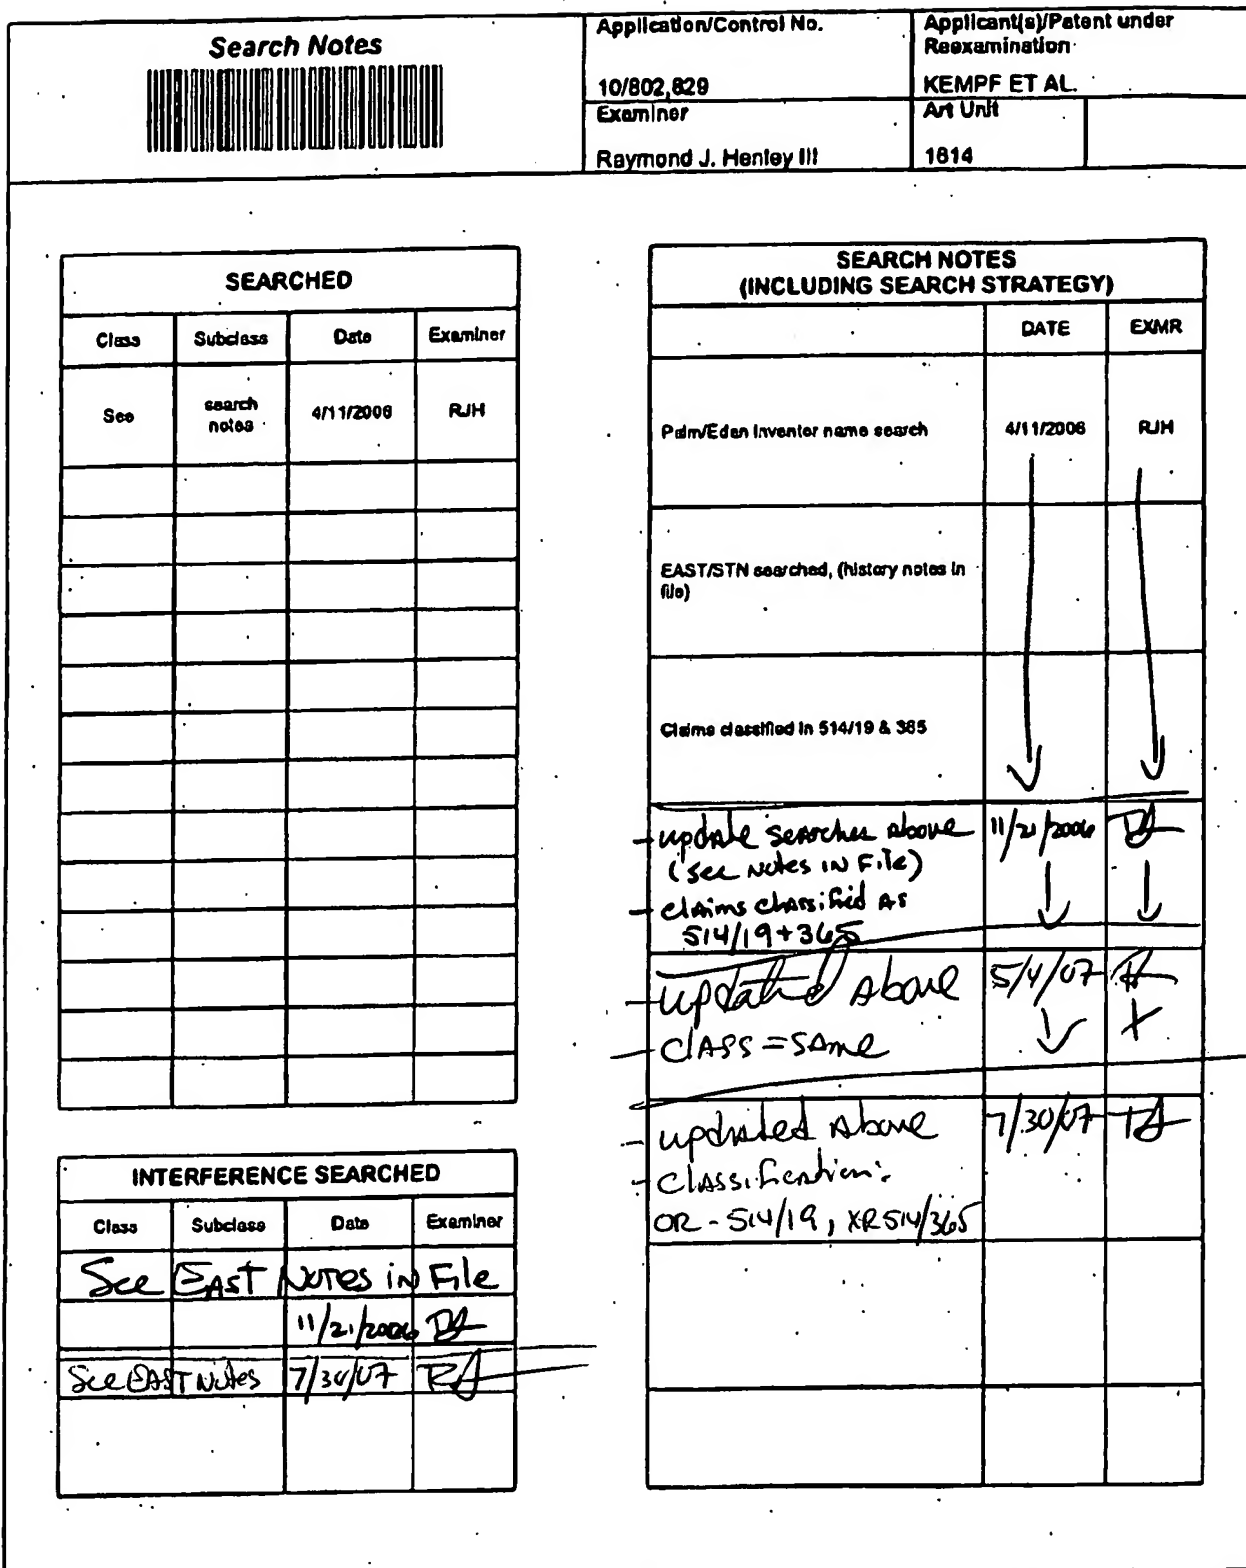 Search Notes
Application/Control No.
10/802,829
Applicant(s)/Patent under
Reexamination
KEMPF ET AL.
Examiner
Raymond J. Henley III
Art Unit
1614
SEARCHED
Class Subclass Date Examiner
See search notes 4/11/2006 RJH
INTERFERENCE SEARCHED
Class Subclass Date Examiner
See EAST Notes in File
11/21/2006
See EAST Notes 7/30/07
SEARCH NOTES
(INCLUDING SEARCH STRATEGY)
DATE EXMR
Palm/Edan Inventor name search 4/11/2006 RJH
EAST/STN searched, (history notes in
file)
Claims classified in 514/19 & 365
- update searches above 11/21/2006
(see notes in File)
- claims classified as
514/19+365
- updated above 5/4/07
- class = same
- updated above 7/30/07
- classification:
OR - 514/19, XR 514/365